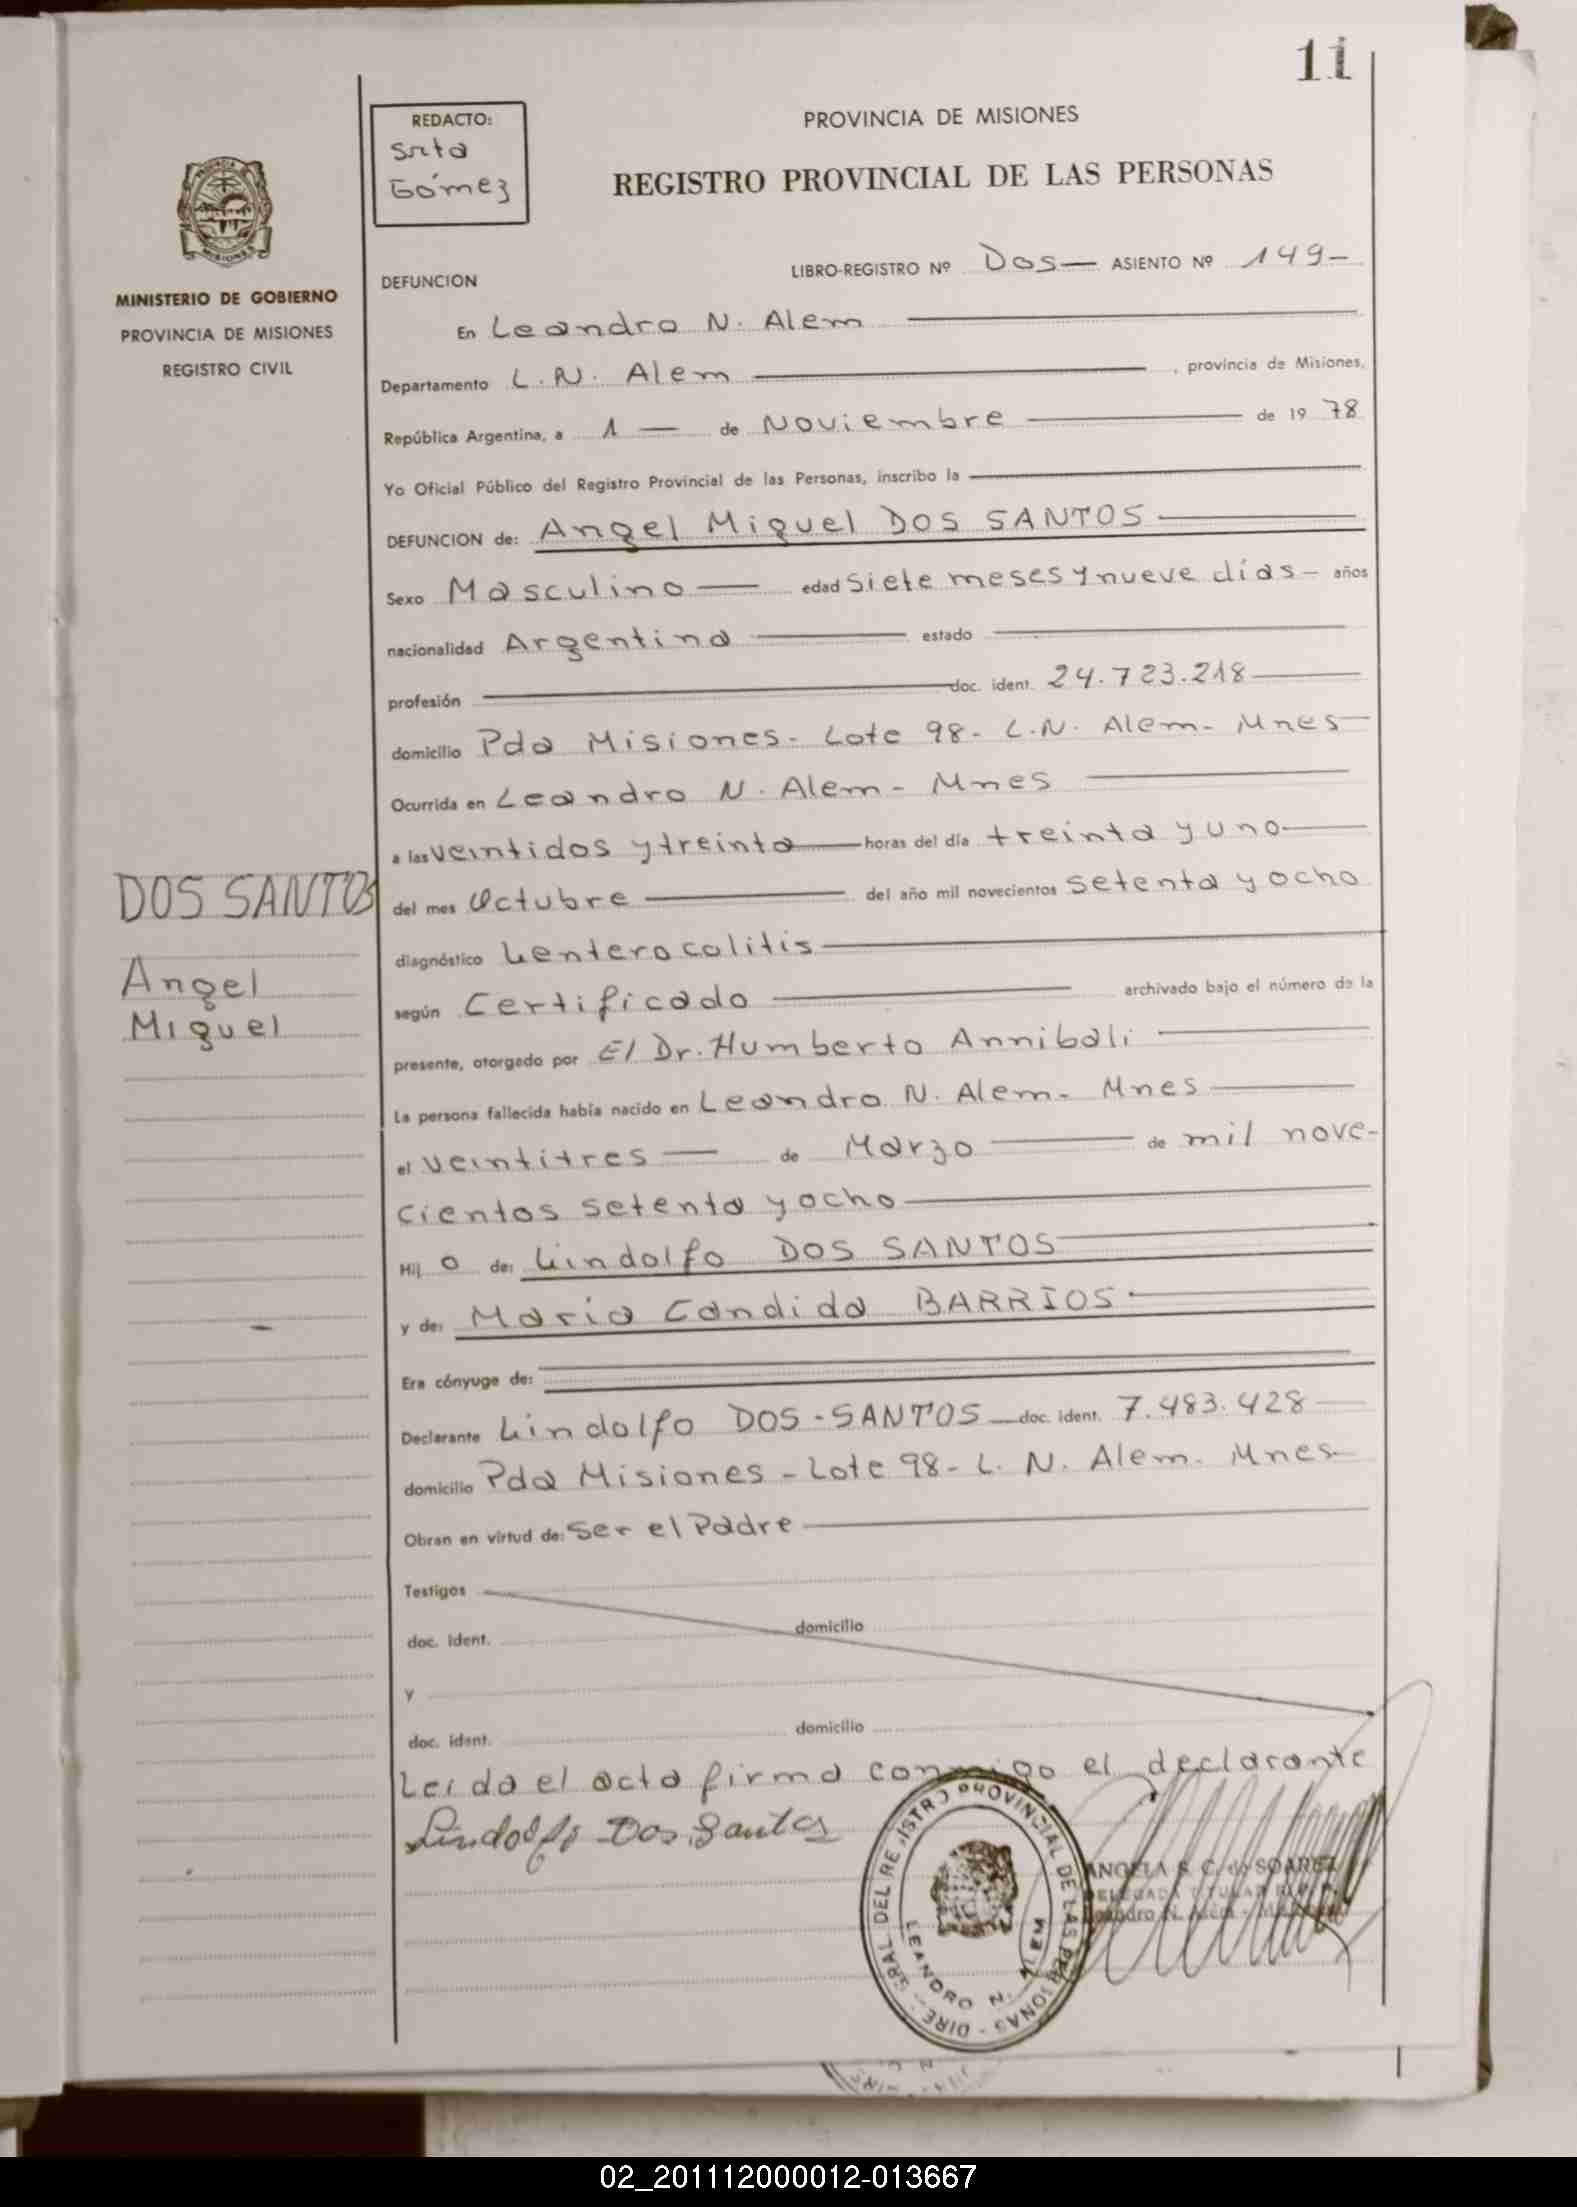 11
REDACTO:
Srta
Gómez
PROVINCIA DE MISIONES
REGISTRO PROVINCIAL DE LAS PERSONAS
MINISTERIO DE GOBIERNO
PROVINCIA DE MISIONES
REGISTRO CIVIL
DEFUNCION
LIBRO-REGISTRO Nº Dos— ASIENTO Nº 149-
En Leandro N. Alem
Departamento L.N. Alem , provincia de Misiones,
República Argentina, a 1 — de Noviembre de 19 78
Yo Oficial Público del Registro Provincial de las Personas, inscribo la
DEFUNCION de: Angel Miguel DOS SANTOS
Sexo Masculino edad Siete meses y nueve días - años
nacionalidad Argentina estado
profesión doc. ident. 24.723.218
domicilio Pda Misiones - Lote 98 - L.N. Alem - Mnes
Ocurrida en Leandro N. Alem - Mnes
a las veintidos y treinta horas del día treinta y uno
del mes Octubre del año mil novecientos setenta y ocho
DOS SANTOS
Angel
Miguel
diagnóstico Lenterocolitis
según Certificado archivado bajo el número de la
presente, otorgado por El Dr. Humberto Annibali
La persona fallecida había nacido en Leandro N. Alem - Mnes
el veintitres de Marzo de mil nove-
cientos setenta y ocho
Hij o de: Lindolfo DOS SANTOS
y de: Maria Candida BARRIOS
Era cónyuge de:
Declarante Lindolfo DOS-SANTOS doc. ident. 7.483.428
domicilio Pda Misiones - Lote 98 - L. N. Alem. Mnes
Obran en virtud de: Ser el Padre
Testigos
doc. ident. domicilio
y
doc. ident. domicilio
Leida el acta firma conmigo el declarante
Lindolfo Dos Santos
DIRE GRAL DEL REGISTRO PROVINCIAL DE LAS PERSONAS -
LEANDRO N. ALEM
ANGELA S. C. de SOAREZ
DELEGADA TITULAR
Leandro N. Alem -
02_201112000012-013667